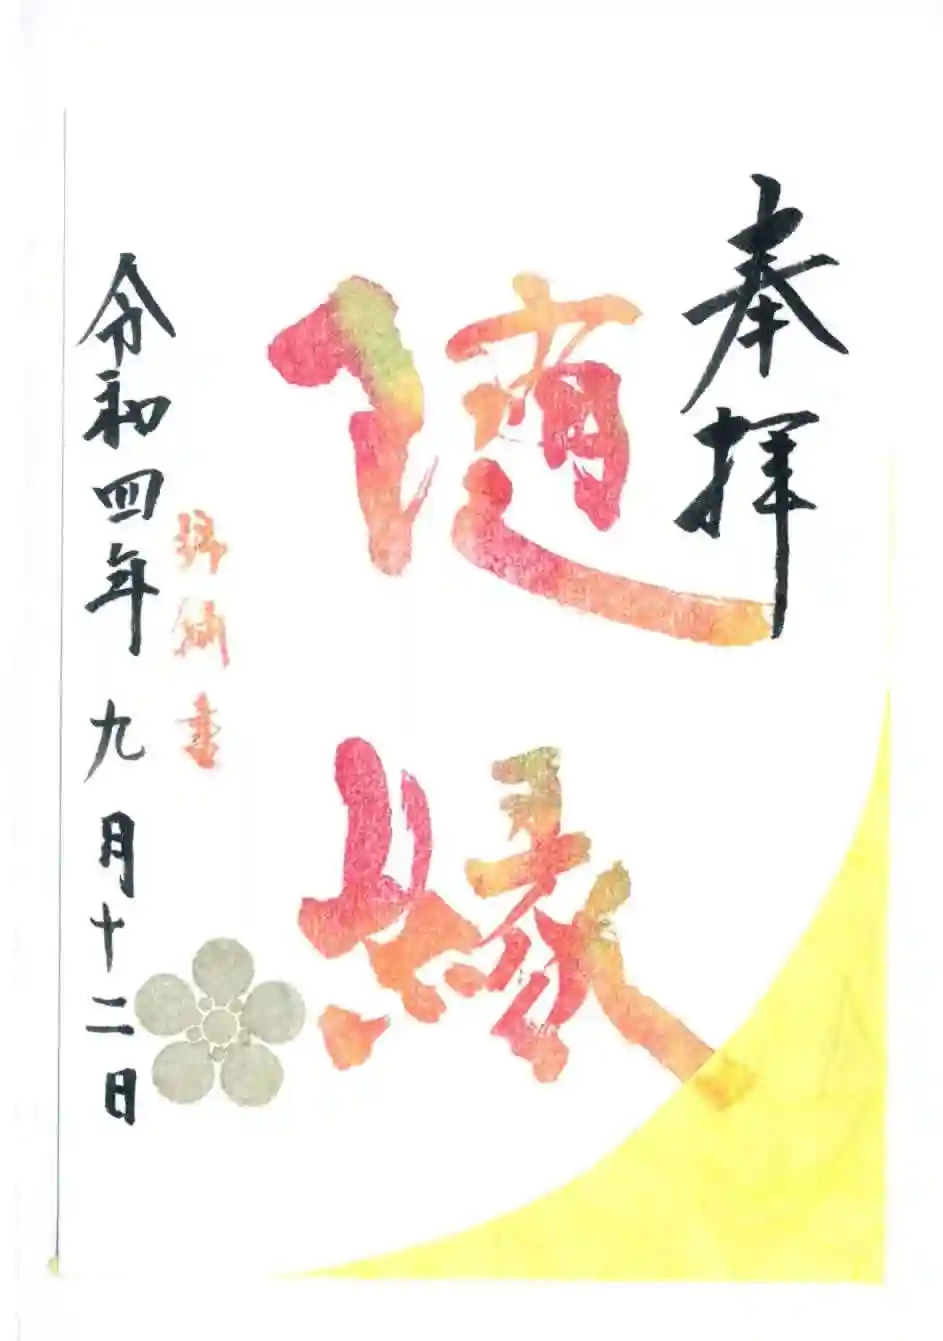 奉拝
随縁
令和四年九月十二日